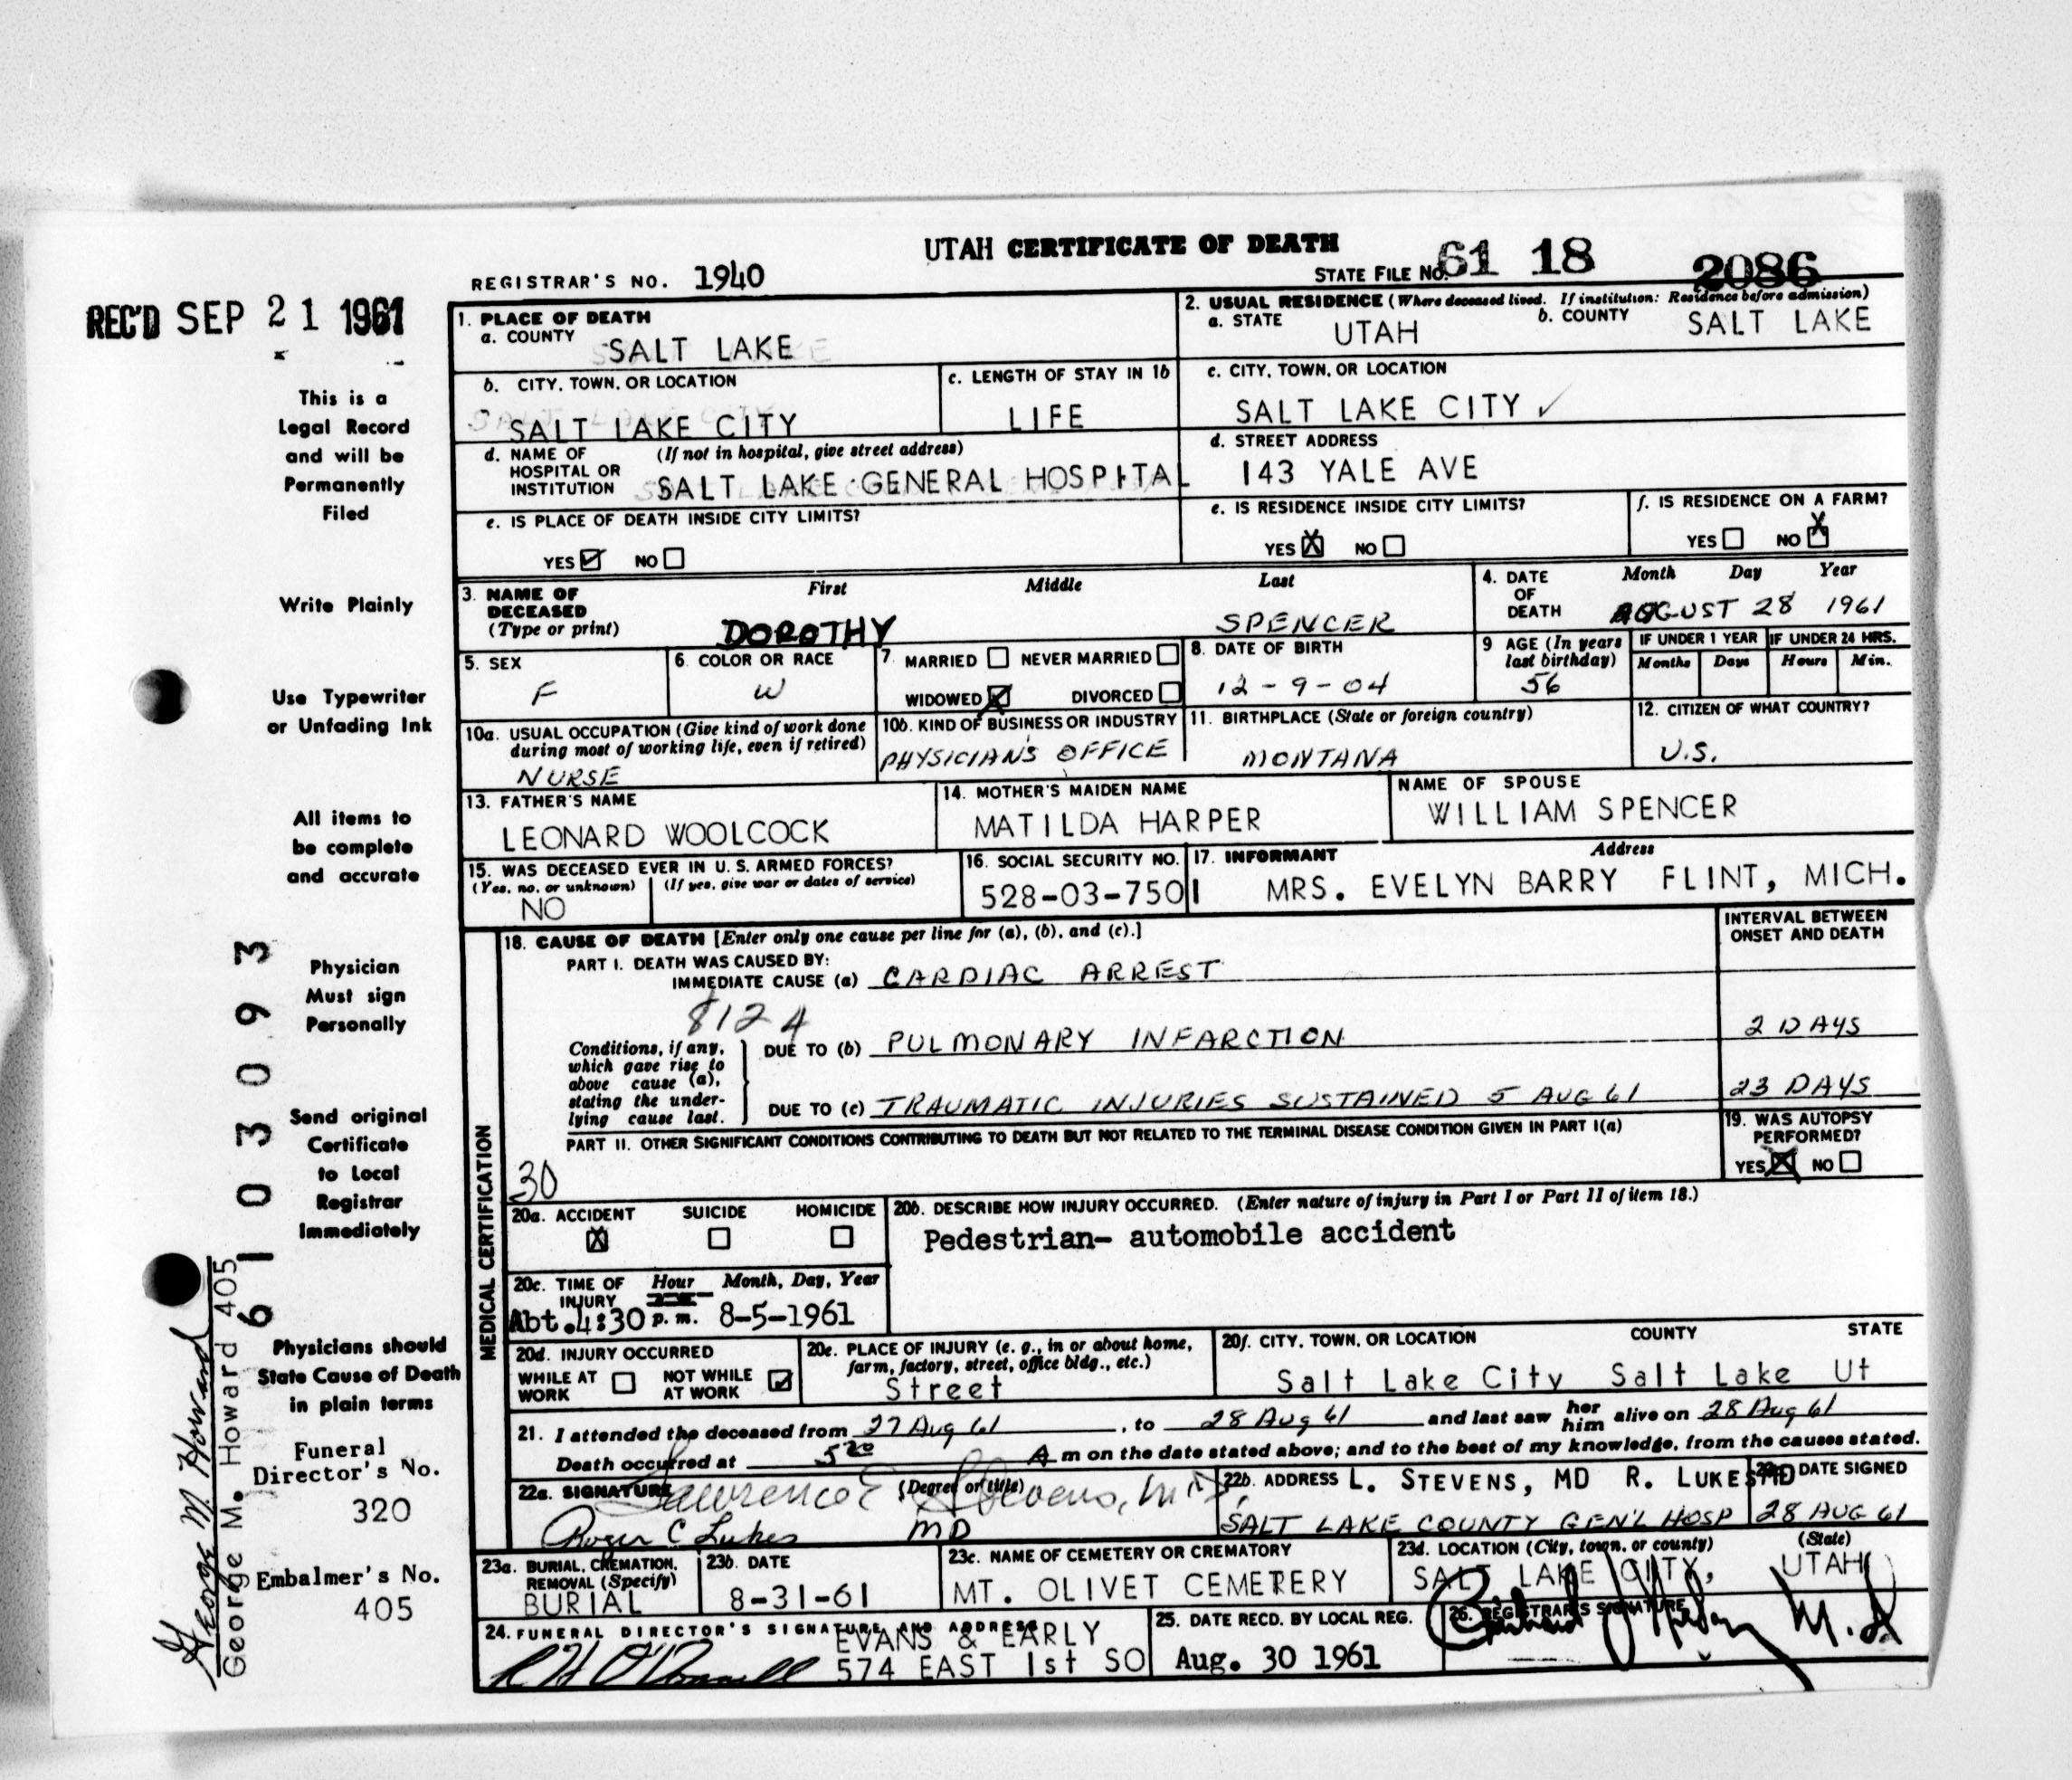 UTAH CERTIFICATE OF DEATH
REGISTRAR'S NO. 1940
STATE FILE NO. 61 18 2086
REC'D SEP 21 1961
This is a
Legal Record
and will be
Permanently
Filed
Write Plainly
Use Typewriter
or Unfading Ink
All items to
be complete
and accurate
Physician
Must sign
Personally
Send original
Certificate
to Local
Registrar
Immediately
Physicians should
State Cause of Death
in plain terms
Funeral
Director's No.
320
Embalmer's No.
405
61 03093
George M. Howard 405
George M Howard
1. PLACE OF DEATH
a. COUNTY
SALT LAKE
2. USUAL RESIDENCE (Where deceased lived. If institution: Residence before admission)
a. STATE UTAH b. COUNTY SALT LAKE
b. CITY, TOWN, OR LOCATION
SALT LAKE CITY
c. LENGTH OF STAY IN 1b
LIFE
c. CITY, TOWN, OR LOCATION
SALT LAKE CITY ✓
d. NAME OF (If not in hospital, give street address)
HOSPITAL OR
INSTITUTION SALT LAKE GENERAL HOSPITAL
d. STREET ADDRESS
143 YALE AVE
e. IS PLACE OF DEATH INSIDE CITY LIMITS?
YES ☑ NO ☐
e. IS RESIDENCE INSIDE CITY LIMITS?
YES ☒ NO ☐
f. IS RESIDENCE ON A FARM?
YES ☐ NO ☒
3. NAME OF
DECEASED
(Type or print)
First Middle Last
DOROTHY SPENCER
4. DATE
OF
DEATH
Month Day Year
AUGUST 28 1961
5. SEX
F
6. COLOR OR RACE
W
7. MARRIED ☐ NEVER MARRIED ☐
WIDOWED ☒ DIVORCED ☐
8. DATE OF BIRTH
12-9-04
9 AGE (In years
last birthday)
56
IF UNDER 1 YEAR
Months Days
IF UNDER 24 HRS.
Hours Min.
10a. USUAL OCCUPATION (Give kind of work done
during most of working life, even if retired)
NURSE
10b. KIND OF BUSINESS OR INDUSTRY
PHYSICIAN'S OFFICE
11. BIRTHPLACE (State or foreign country)
MONTANA
12. CITIZEN OF WHAT COUNTRY?
U.S.
13. FATHER'S NAME
LEONARD WOOLCOCK
14. MOTHER'S MAIDEN NAME
MATILDA HARPER
NAME OF SPOUSE
WILLIAM SPENCER
15. WAS DECEASED EVER IN U. S. ARMED FORCES?
(Yes, no, or unknown) (If yes, give war or dates of service)
NO
16. SOCIAL SECURITY NO.
528-03-7501
17. INFORMANT Address
MRS. EVELYN BARRY FLINT, MICH.
MEDICAL CERTIFICATION
18. CAUSE OF DEATH [Enter only one cause per line for (a), (b), and (c).]
INTERVAL BETWEEN
ONSET AND DEATH
PART I. DEATH WAS CAUSED BY:
IMMEDIATE CAUSE (a) CARDIAC ARREST
8124
Conditions, if any,
which gave rise to
above cause (a),
stating the under-
lying cause last.
DUE TO (b) PULMONARY INFARCTION 2 DAYS
DUE TO (c) TRAUMATIC INJURIES SUSTAINED 5 AUG 61 23 DAYS
PART II. OTHER SIGNIFICANT CONDITIONS CONTRIBUTING TO DEATH BUT NOT RELATED TO THE TERMINAL DISEASE CONDITION GIVEN IN PART I(a)
30
19. WAS AUTOPSY
PERFORMED?
YES ☒ NO ☐
20a. ACCIDENT SUICIDE HOMICIDE
☒ ☐ ☐
20b. DESCRIBE HOW INJURY OCCURRED. (Enter nature of injury in Part I or Part II of item 18.)
Pedestrian- automobile accident
20c. TIME OF Hour Month, Day, Year
INJURY
Abt.4:30 p.m. 8-5-1961
20d. INJURY OCCURRED
WHILE AT
WORK ☐
NOT WHILE
AT WORK ☑
20e. PLACE OF INJURY (e. g., in or about home,
farm, factory, street, office bldg., etc.)
Street
20f. CITY, TOWN, OR LOCATION COUNTY STATE
Salt Lake City Salt Lake Ut
21. I attended the deceased from 27 Aug 61, to 28 Aug 61 and last saw her him alive on 28 Aug 61
Death occurred at 5 20 A m on the date stated above; and to the best of my knowledge, from the causes stated.
22a. SIGNATURE (Degree or title)
Lawrence E Stevens, M.D.
Roger C Lukes MD
22b. ADDRESS L. STEVENS, MD R. LUKES MD
SALT LAKE COUNTY GEN'L HOSP
22c. DATE SIGNED
28 AUG 61
23a. BURIAL, CREMATION,
REMOVAL (Specify)
BURIAL
23b. DATE
8-31-61
23c. NAME OF CEMETERY OR CREMATORY
MT. OLIVET CEMETERY
23d. LOCATION (City, town, or county) (State)
SALT LAKE CITY, UTAH
24. FUNERAL DIRECTOR'S SIGNATURE AND ADDRESS
EVANS & EARLY
574 EAST 1st SO
25. DATE RECD. BY LOCAL REG.
Aug. 30 1961
26. REGISTRAR'S SIGNATURE
M.D